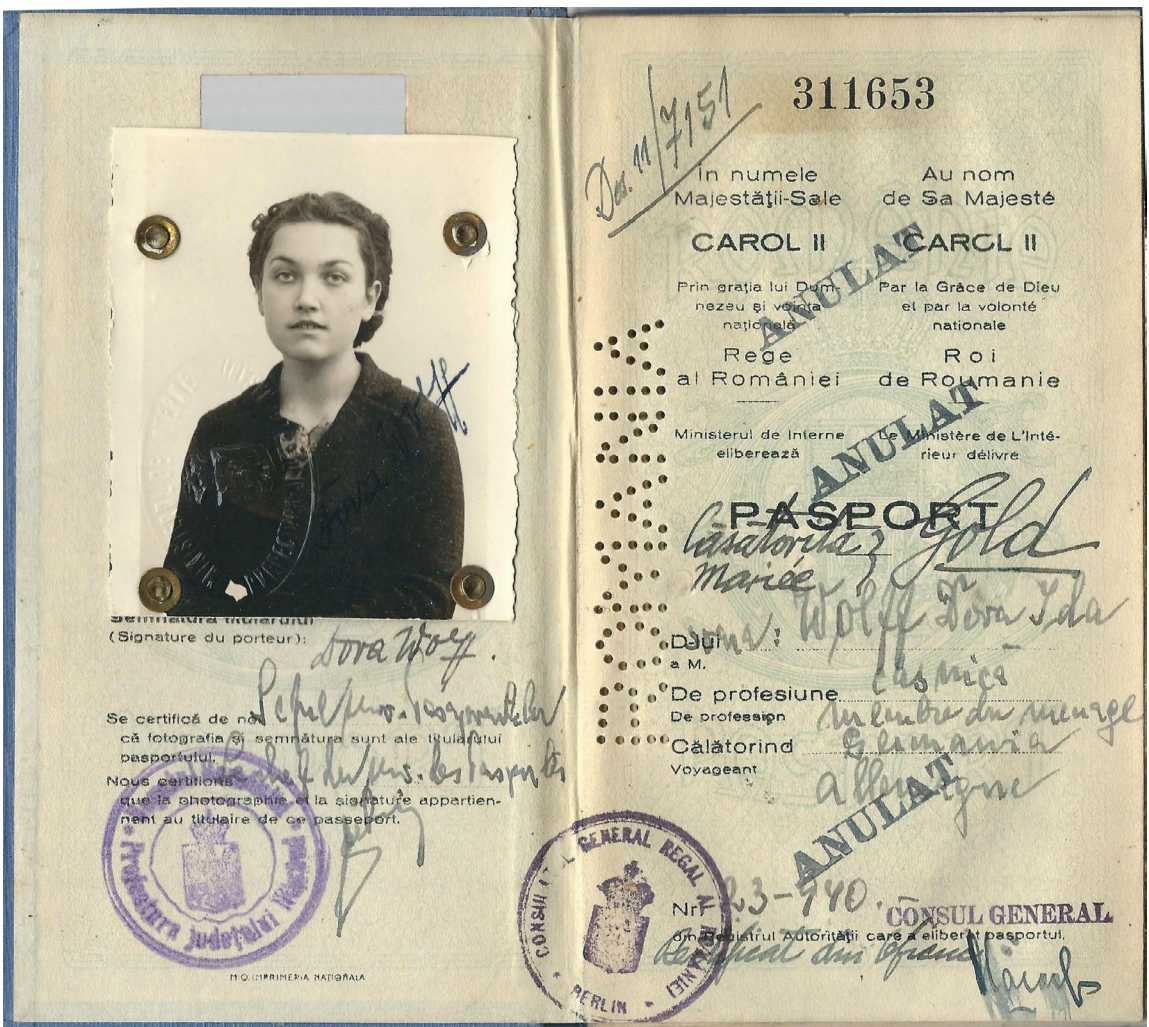 Dora Wolff
Semnătura titularului
(Signature du porteur): Dora Wolff.
Se certifică de noi
că fotografia și semnătura sunt ale titularului
pasportului.
Nous certifions
que la photographie et la signature appartien-
nent au titulaire de ce passeport.
Prefectura Județului
M.O. IMPRIMERIA NAȚIONALA
311653
Dos. 11/7151
In numele
Majestății-Sale
CAROL II
Prin grația lui Dum-
nezeu și voința
națională
Rege
al României
Ministerul de Interne
eliberează
Au nom
de Sa Majesté
CAROL II
Par la Grâce de Dieu
et par la volonté
nationale
Roi
de Roumanie
Le Ministère de L'Inté-
rieur délivre
ANULAT
ANULAT
ROMANIA
PASPORT
Căsătorită Gold
Mariée
D-lui Wolff Dora Ida
a M.
De profesiune casnică
De profession membre du menage
Călătorind Germania
Voyageant Allemagne
ANULAT
CONSULATUL GENERAL REGAL AL ROMANIEI
BERLIN
Nr. 23-940.
CONSUL GENERAL
din Registrul Autorității care a eliberat pasportul.